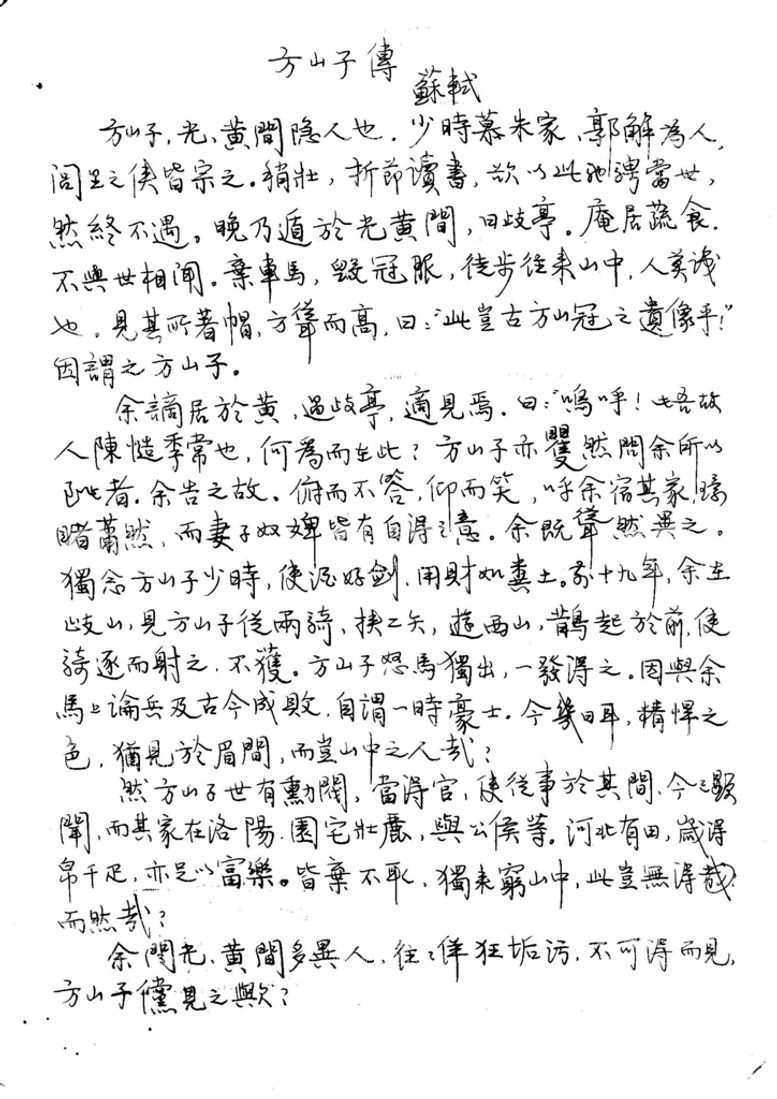 方山子傳
蘇軾
方山子，光、黃間隱人也．少時慕朱家、郭解為人，
閭里之俠皆宗之。稍壯，折節讀書，欲以此馳騁當世，
然終不遇。晚乃遁於光黃間，曰歧亭。庵居蔬食．
不與世相聞。棄車馬，毀冠服，徒步往來山中，人莫識
也。見其所著帽，方聳而高，曰："此豈古方山冠之遺像乎！"
因謂之方山子。
余謫居於黃，過歧亭，適見焉．曰："嗚呼！此吾故
人陳慥季常也，何為而在此？方山子亦矍然問余所以
至此者．余告之故。俯而不答，仰而笑，呼余宿其家，環
堵蕭然，而妻子奴婢皆有自得之意。余既聳然異之。
獨念方山子少時，使酒好劍，用財如糞土。前十九年，余在
歧山，見方山子從兩騎，挾二矢，遊西山，鵲起於前，使
騎逐而射之，不獲。方山子怒馬獨出，一發得之。因與余
馬上論兵及古今成敗，自謂一時豪士．今幾日耳，精悍之
色，猶見於眉間，而豈山中之人哉？
然方山子世有勳閥，當得官，使從事於其間，今已顯
聞，而其家在洛陽．園宅壯麗，與公侯等。河北有田，歲得
帛千疋，亦足以富樂。皆棄不取，獨來窮山中，此豈無得
而然哉？
余聞光、黃間多異人，往々佯狂垢污，不可得而見，
方山子儻見之歟？